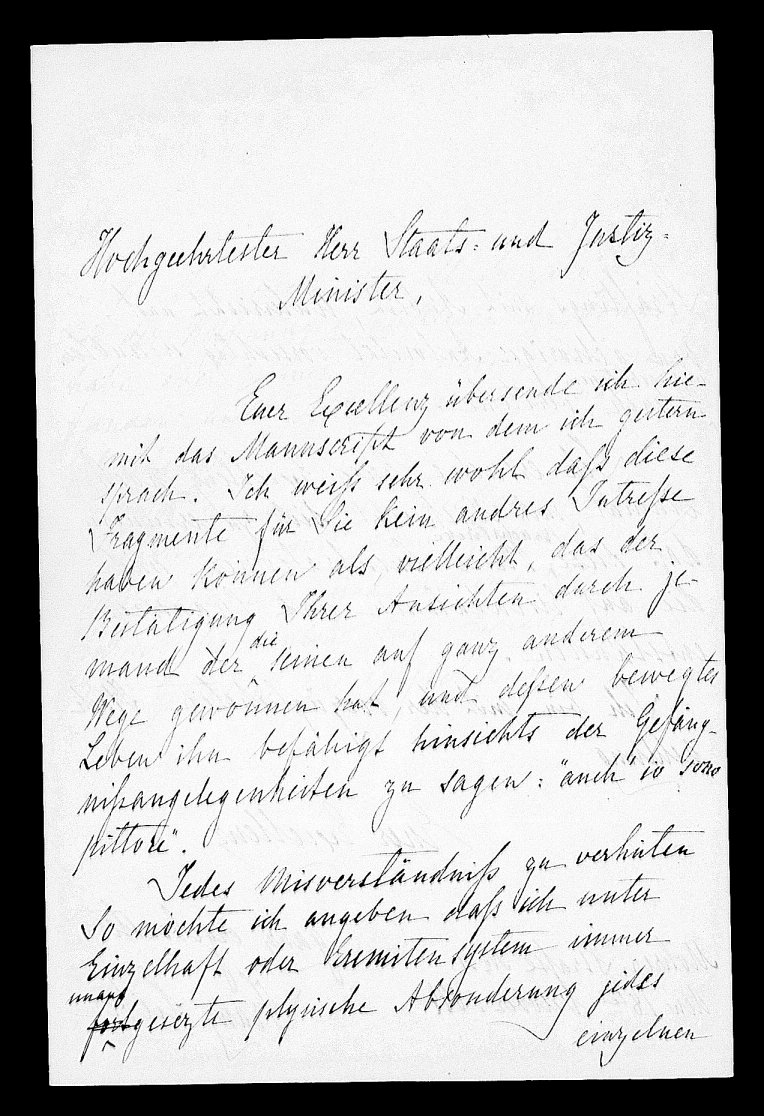 Hochgeehrtester Herr Staats- und Justiz-
Minister,
Euer Excellenz übersende ich hie-
mit das Mannscript von dem ich gestern
sprach. Ich weiß sehr wohl daß diese
Fragmente für Sie kein andres Intreße
haben können als, vielleicht, das der
Bestätigung Ihrer Ansichten durch je-
mand der die seinen auf ganz anderem
Wege gewonnen hat, und deßen bewegtes
Leben ihn befähigt hinsichts der Gefäng-
nißangelegenheiten zu sagen: "auch" io sono
pittore".
Jedes Misverständniß zu verhüten
So möchte ich angeben daß ich unter
Einzelhaft oder Eremitensystem immer
fortgesezte physische Absonderung jedes
einzelnen